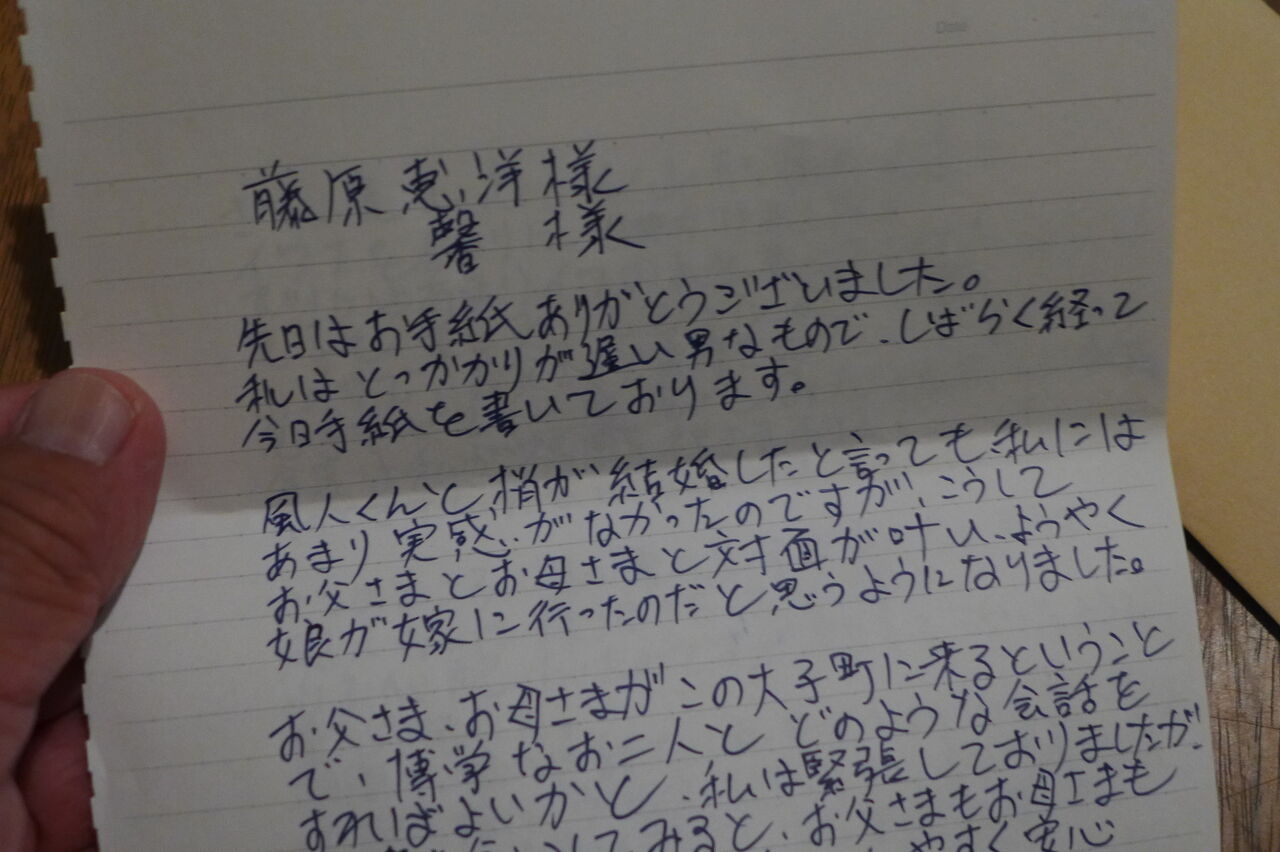 Date
藤原恵洋様
馨 様
先日はお手紙ありがとうございました。
私はとっかかりが遅い男なもので、しばらく経って
今日手紙を書いております。
風人くんと梢が結婚したと言っても私には
あまり実感がなかったのですが、こうして
お父さまとお母さまと対面が叶い、ようやく
娘が嫁に行ったのだと思うようになりました。
お父さま、お母さまがこの大子町に来るということ
で、博学なお二人とどのような会話を
すればよいかと、私は緊張しておりましたが、
してみると、お父さまもお母さまも
やすく安心